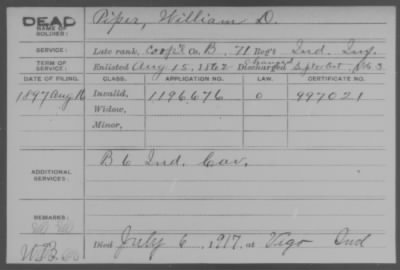 DEAD
NAME OF SOLDIER: Piper, William D.
SERVICE: Late rank, Corp'l Co. B, 71 Reg't Ind. Inf.
TERM OF SERVICE: Enlisted Aug 15, 1862 Discharged
DATE OF FILING. CLASS. APPLICATION NO. LAW. CERTIFICATE NO.
1897 Aug 16 Invalid, 1196676 0 997021
Widow,
Minor,
ADDITIONAL SERVICES: B 6 Ind. Cav.
REMARKS:
Died July 6, 1917, at Vigo Ind